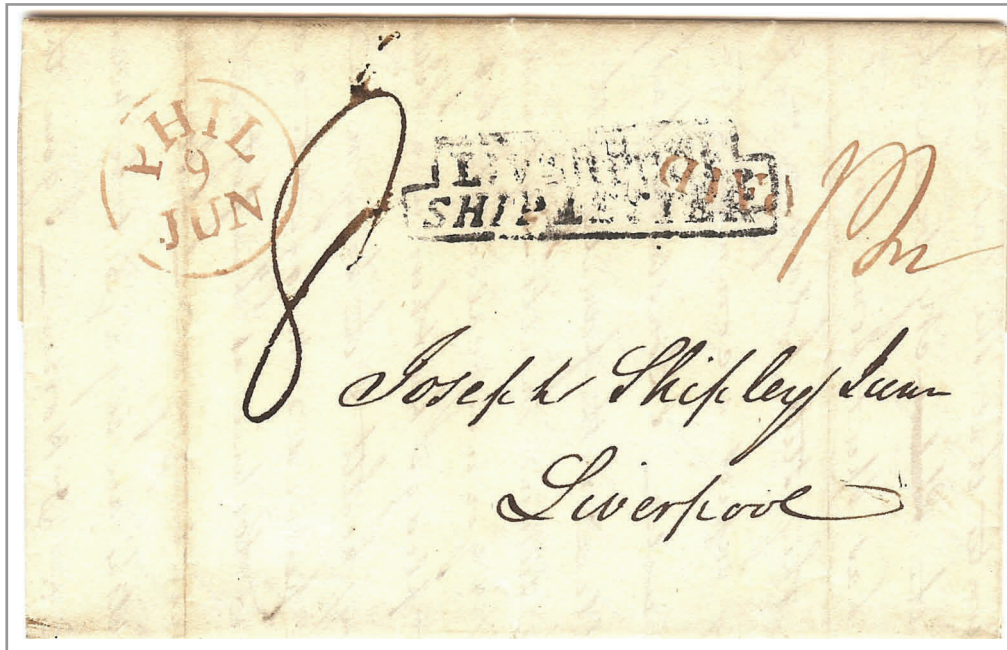 PHIL
9
JUN
8
LIVERPOOL
SHIP LETTER
PAID
Joseph Shipley Junr
Liverpool